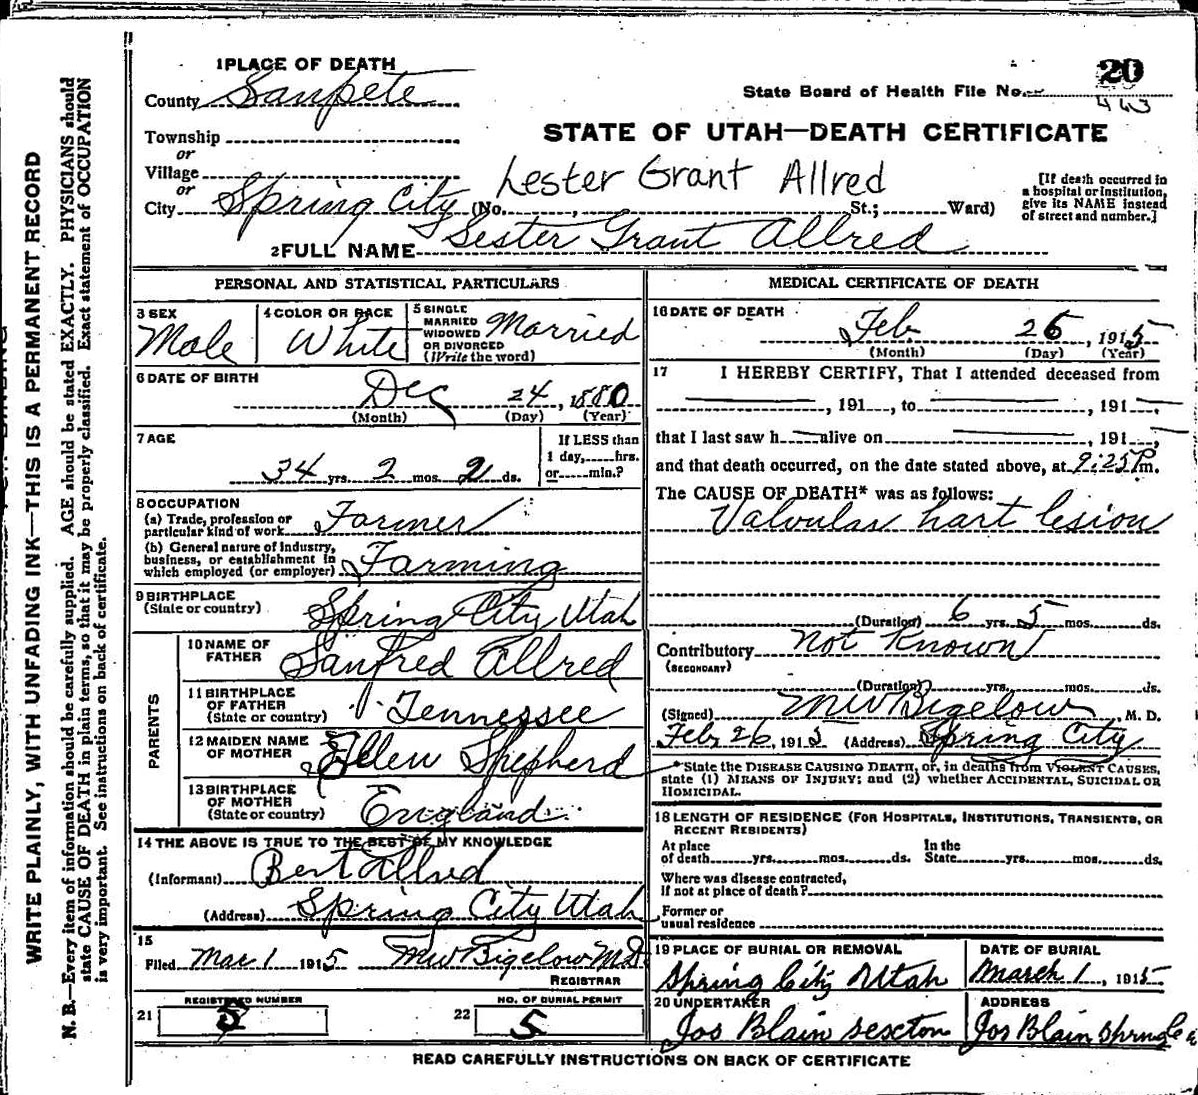 1 PLACE OF DEATH
20
County Sanpete
State Board of Health File No. 463
Township
STATE OF UTAH—DEATH CERTIFICATE
or
Village
or
Lester Grant Allred
[If death occurred in a hospital or institution, give its NAME instead of street and number.]
City Spring City (No. , St.; Ward)
2 FULL NAME Lester Grant Allred
PERSONAL AND STATISTICAL PARTICULARS
3 SEX
Male
4 COLOR OR RACE
White
5 SINGLE
MARRIED
WIDOWED
OR DIVORCED
(Write the word)
Married
6 DATE OF BIRTH
Dec 24, 1880
(Month) (Day) (Year)
7 AGE
34 yrs. 2 mos. 2 ds.
If LESS than
1 day, hrs.
or min.?
8 OCCUPATION
(a) Trade, profession or
particular kind of work Farmer
(b) General nature of industry,
business, or establishment in
which employed (or employer) Farming
9 BIRTHPLACE
(State or country) Spring City Utah
PARENTS
10 NAME OF
FATHER Sanfred Allred
11 BIRTHPLACE
OF FATHER
(State or country) Tennessee
12 MAIDEN NAME
OF MOTHER Ellen Shepherd
13 BIRTHPLACE
OF MOTHER
(State or country) England
14 THE ABOVE IS TRUE TO THE BEST OF MY KNOWLEDGE
(Informant) Bert Allred
(Address) Spring City Utah
15
Filed Mar 1 1915 MW Bigelow M.D.
REGISTRAR
REGISTERED NUMBER
21 5
NO. OF BURIAL PERMIT
22 5
MEDICAL CERTIFICATE OF DEATH
16 DATE OF DEATH
Feb 26, 1915
(Month) (Day) (Year)
17 I HEREBY CERTIFY, That I attended deceased from
, 191 , to , 191 ,
that I last saw h alive on , 191 ,
and that death occurred, on the date stated above, at 9:25 P m.
The CAUSE OF DEATH* was as follows:
Valvular hart lesion
(Duration) 6 yrs. 5 mos. ds.
Contributory Not Known
(SECONDARY)
(Duration) yrs. mos. ds.
(Signed) MW Bigelow M. D.
Feb 26, 1915 (Address) Spring City
*State the DISEASE CAUSING DEATH, or, in deaths from VIOLENT CAUSES,
state (1) MEANS OF INJURY; and (2) whether ACCIDENTAL, SUICIDAL OR
HOMICIDAL.
18 LENGTH OF RESIDENCE (FOR HOSPITALS, INSTITUTIONS, TRANSIENTS, OR
RECENT RESIDENTS)
At place
of death yrs. mos. ds.
In the
State yrs. mos. ds.
Where was disease contracted,
if not at place of death?
Former or
usual residence
19 PLACE OF BURIAL OR REMOVAL
Spring City Utah
DATE OF BURIAL
March 1, 1915
20 UNDERTAKER
Jos Blain sexcton
ADDRESS
Jos Blain Spring
READ CAREFULLY INSTRUCTIONS ON BACK OF CERTIFICATE
WRITE PLAINLY, WITH UNFADING INK—THIS IS A PERMANENT RECORD
N. B.—Every item of information should be carefully supplied. AGE should be stated EXACTLY. PHYSICIANS should
state CAUSE OF DEATH in plain terms, so that it may be properly classified. Exact statement of OCCUPATION
is very important. See instructions on back of certificate.